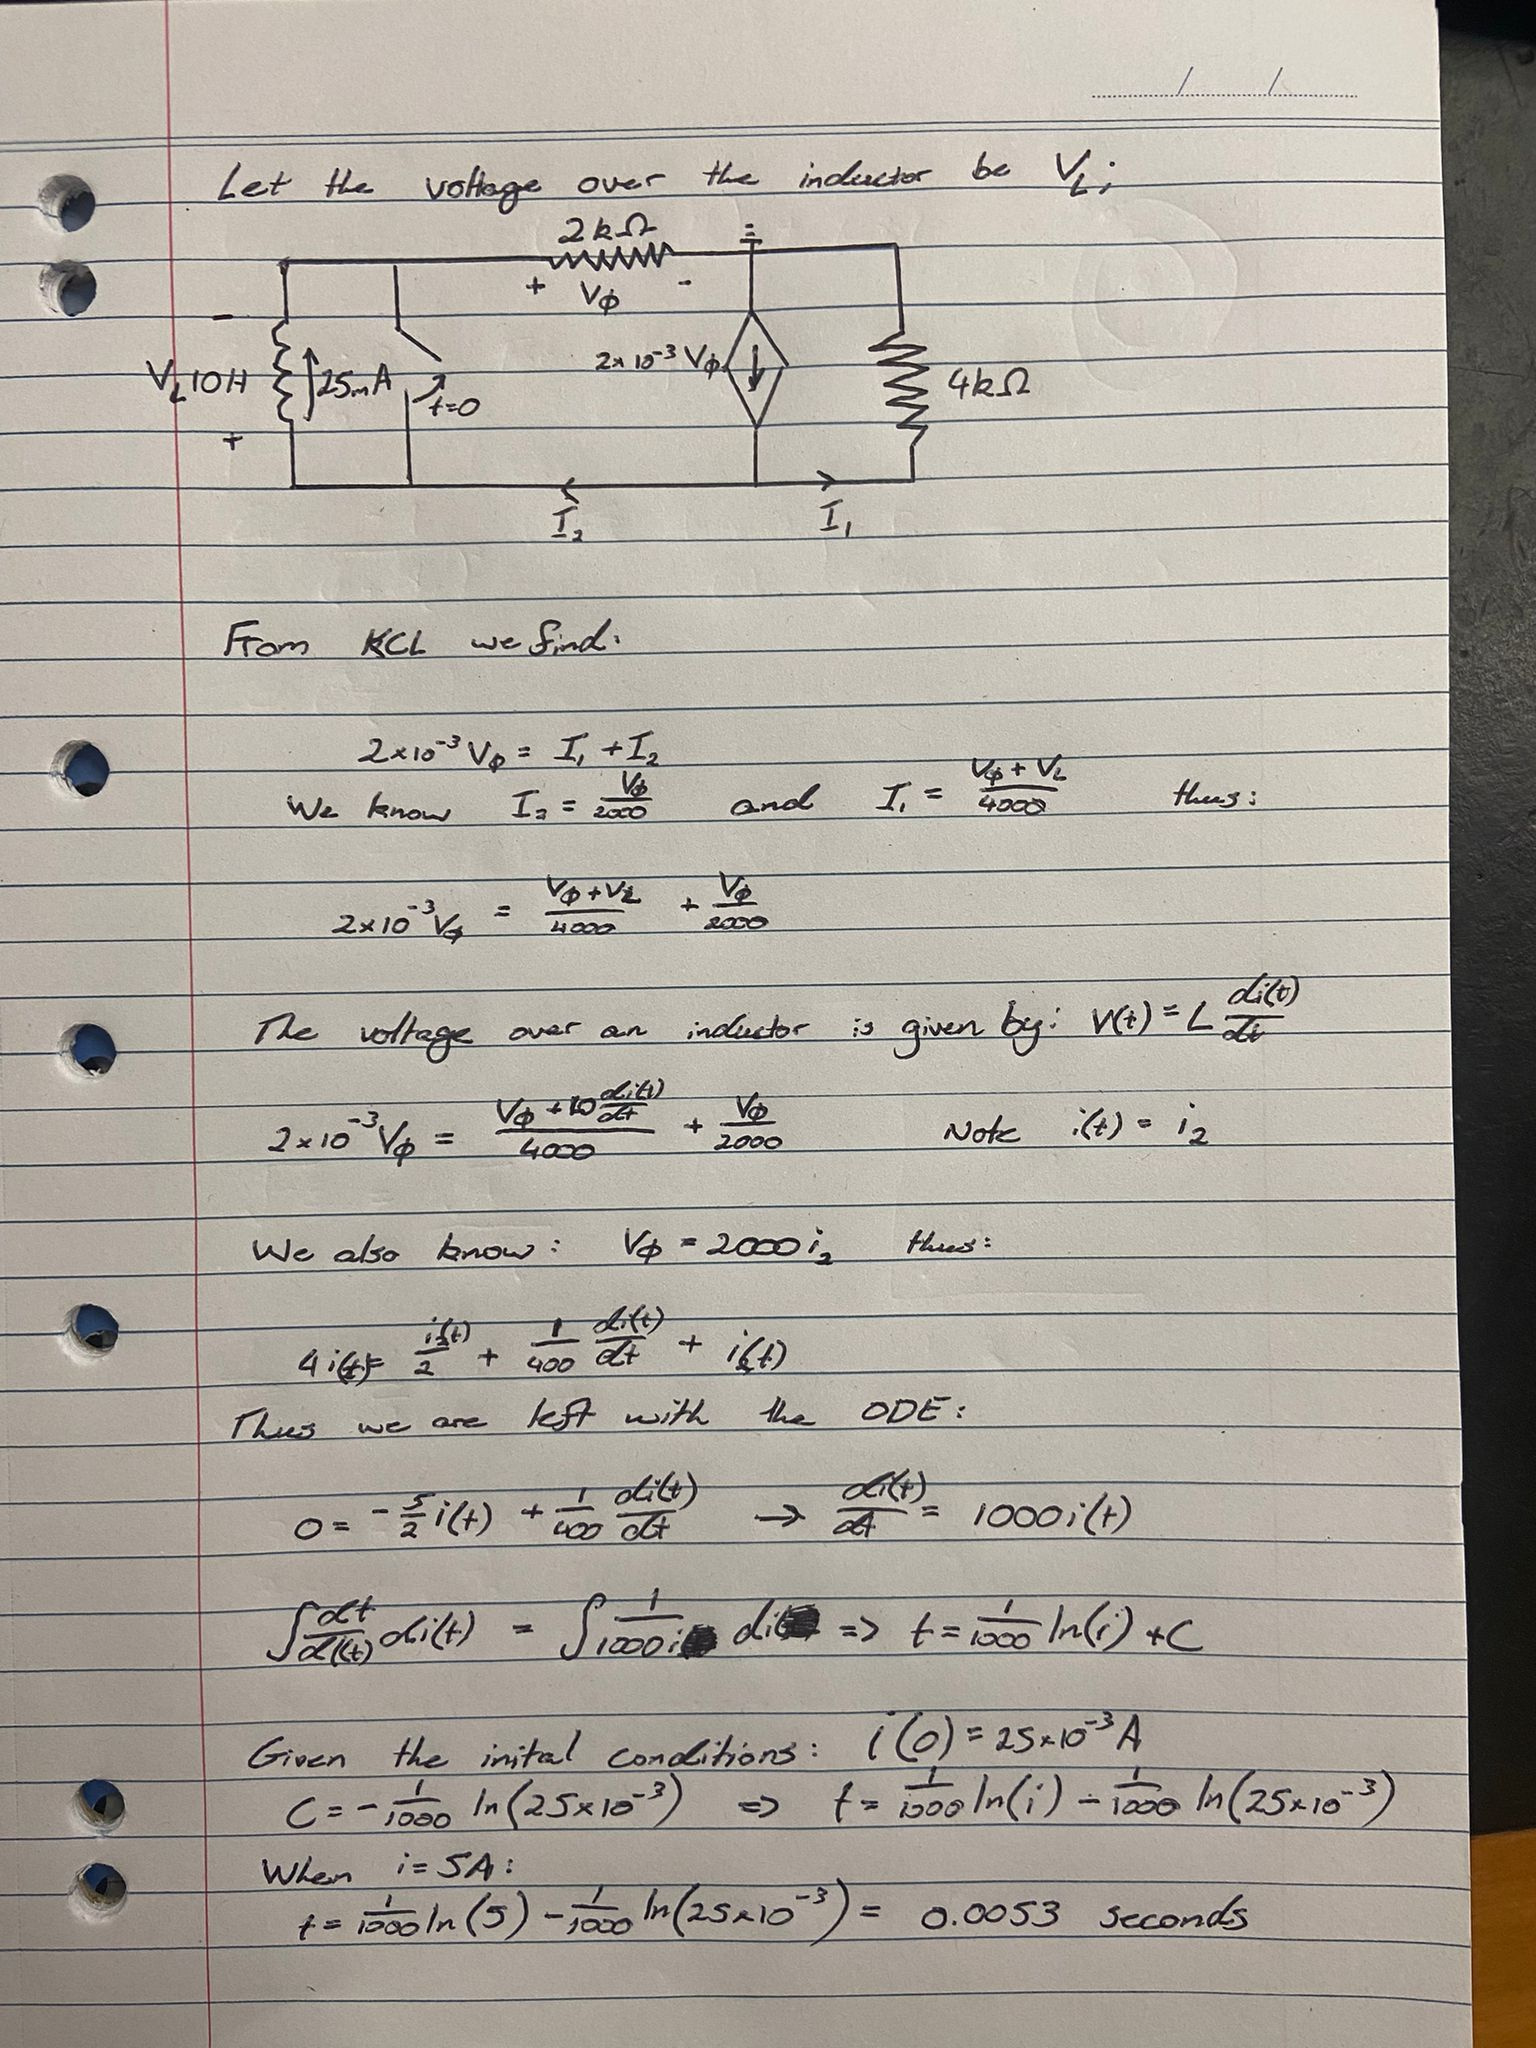 Let the voltage over the inductor be V_L;
2kΩ
+ Vϕ -
-
V_L 10H 25mA t=0 2×10⁻³ Vϕ 4kΩ
+
I₂ I₁
From KCL we find:
2×10⁻³ Vϕ = I₁ + I₂
We know I₂ = Vϕ/2000 and I₁ = (Vϕ + V_L)/4000 thus:
2×10⁻³ Vϕ = (Vϕ + V_L)/4000 + Vϕ/2000
The voltage over an inductor is given by: V(t) = L di(t)/dt
2×10⁻³ Vϕ = (Vϕ + 10 di(t)/dt)/4000 + Vϕ/2000 Note i(t) = i₂
We also know: Vϕ = 2000 i₂ thus:
4 i(t) = i(t)/2 + 1/400 di(t)/dt + i(t)
Thus we are left with the ODE:
0 = -5/2 i(t) + 1/400 di(t)/dt → di(t)/dt = 1000 i(t)
∫ dt/di(t) di(t) = ∫ 1/1000i di => t = 1/1000 ln(i) + C
Given the inital conditions: i(0) = 25×10⁻³ A
C = -1/1000 ln(25×10⁻³) => t = 1/1000 ln(i) - 1/1000 ln(25×10⁻³)
When i = 5A:
t = 1/1000 ln(5) - 1/1000 ln(25×10⁻³) = 0.0053 seconds